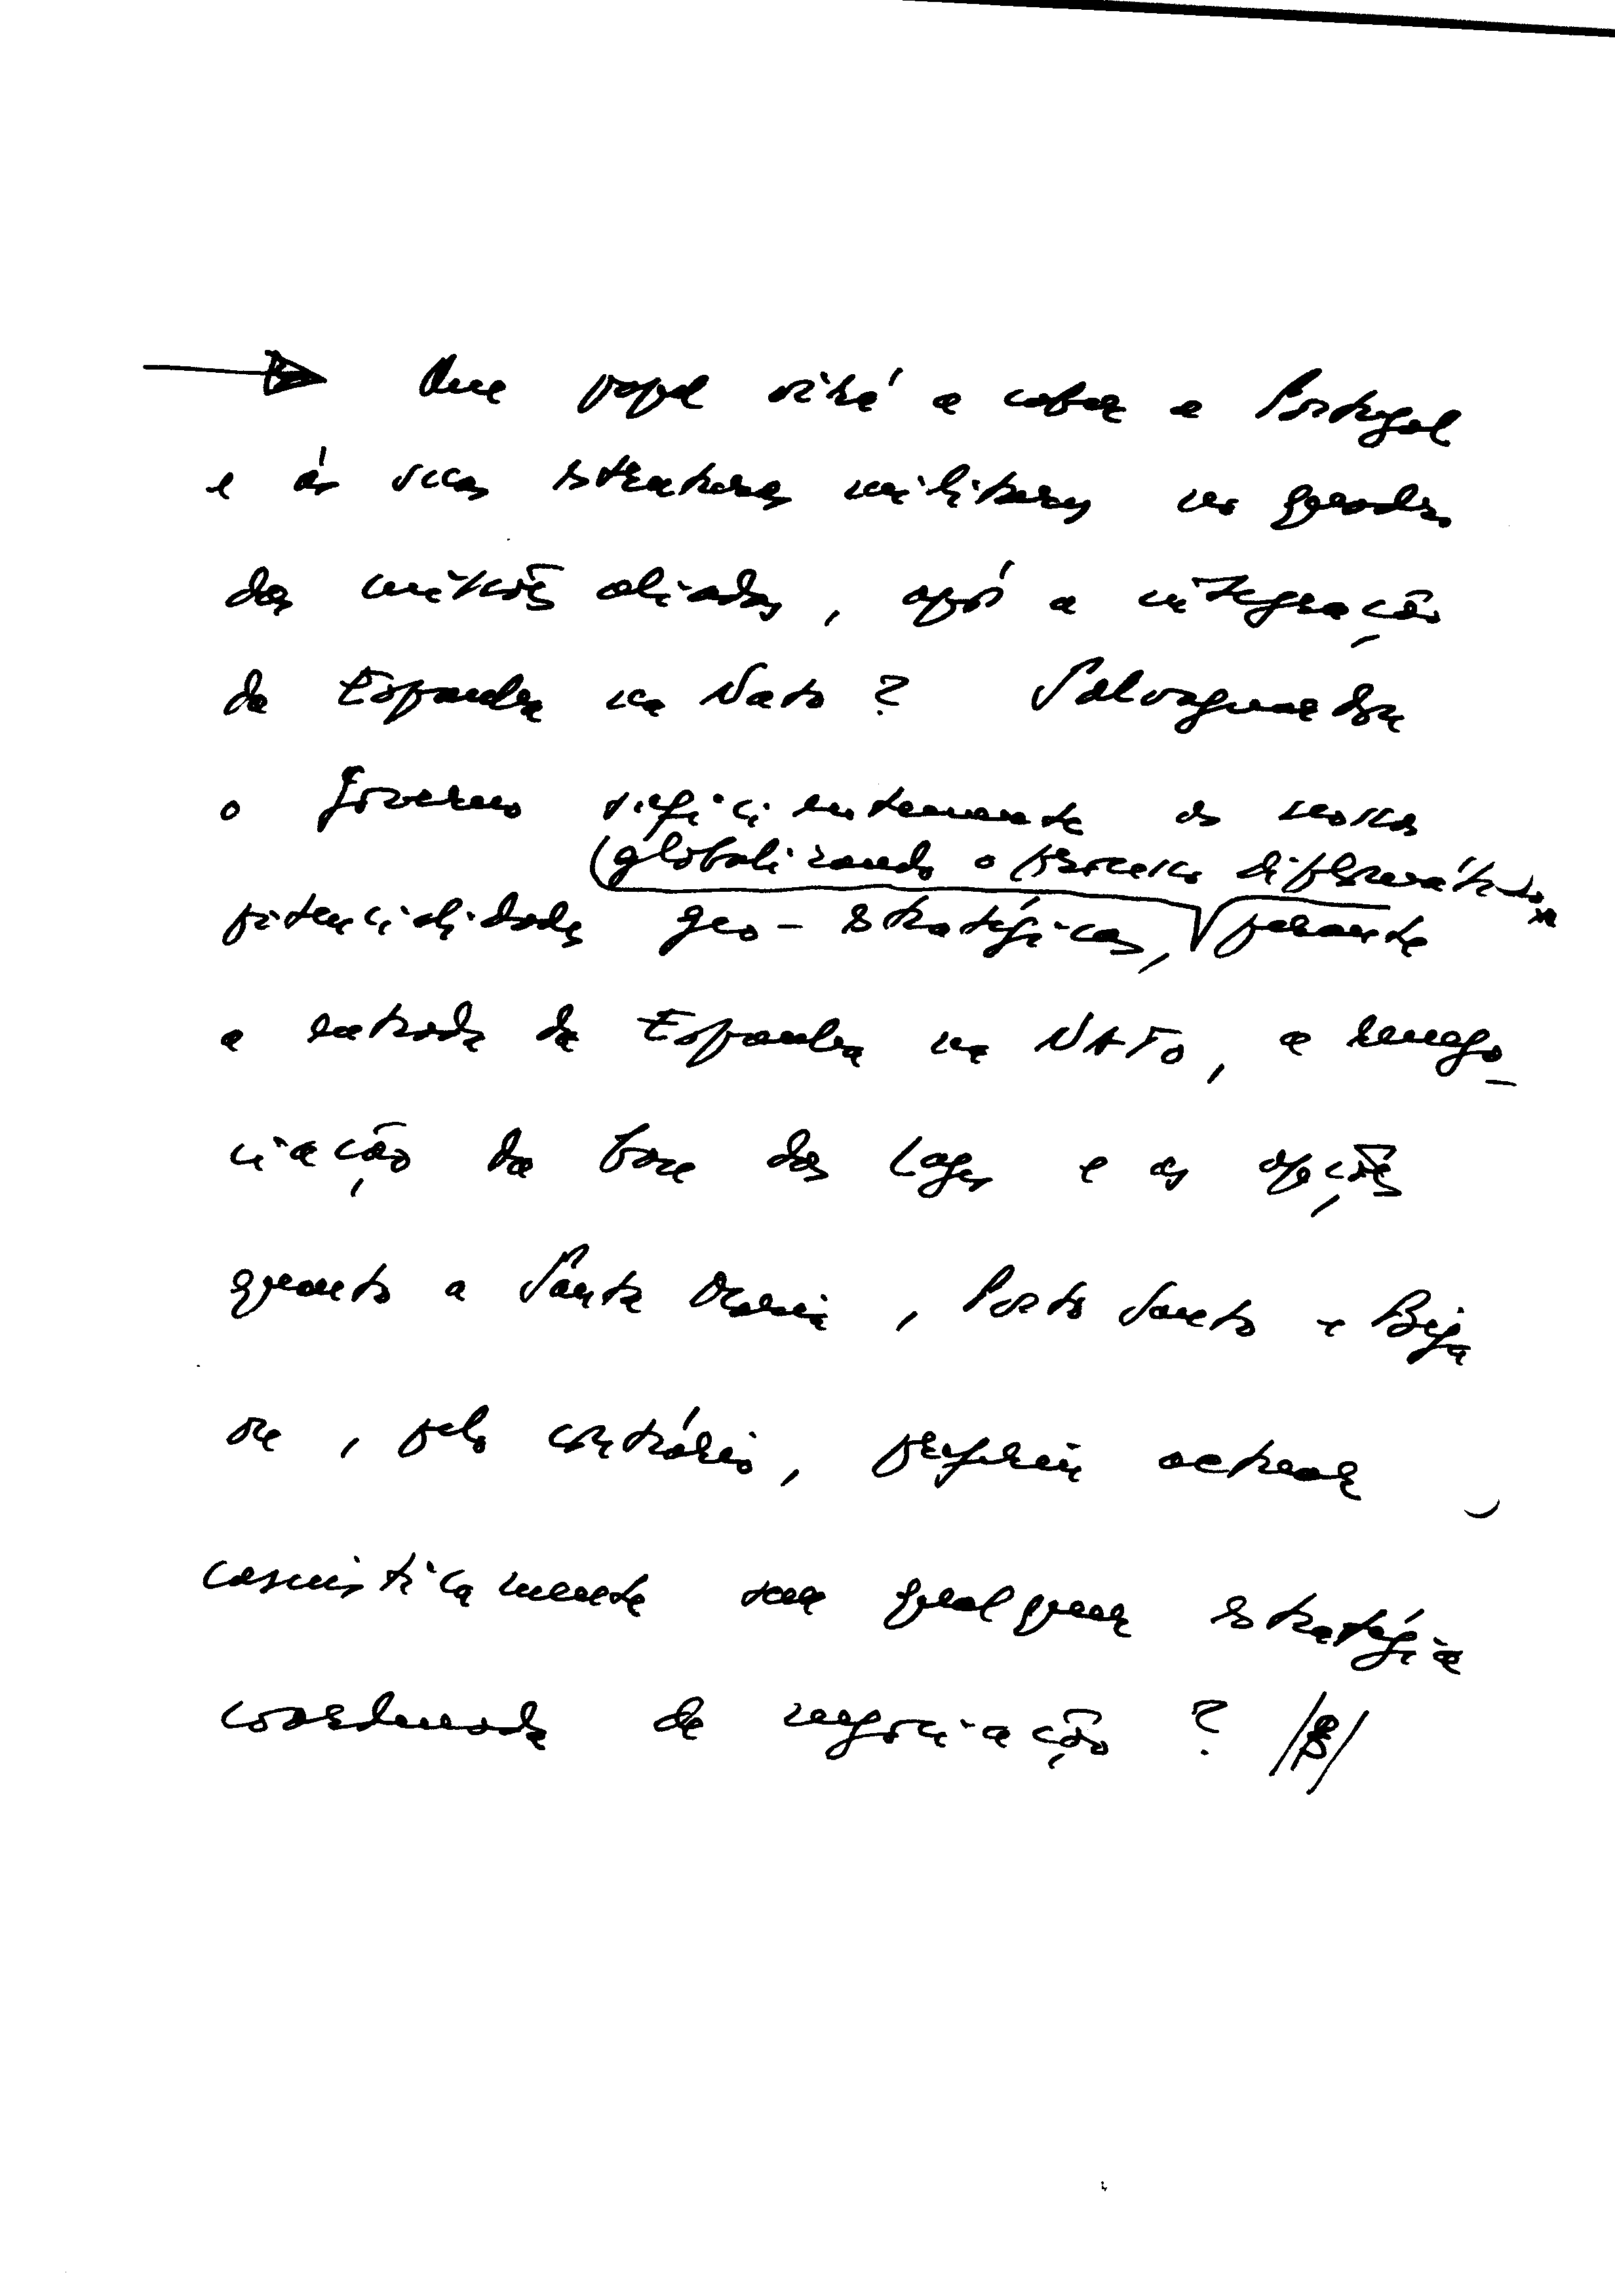 Que papel virá a caber a Portugal
e às suas estruturas militares no quadro
das missões aliadas, após a integração
da Espanha na Nato? Salvaguardou
o Governo suficientemente as nossas
(globalizando o processo diplomático)
potencialidades geo-estratégicas, perante
a entrada da Espanha na NATO, a renego-
ciação da base das Lages e as opções
quanto a Santa Maria, Porto Santo e Beja
ou, pelo contrário, preferiu actuar
casuisticamente sem qualquer estratégia
coordenada de negociação?